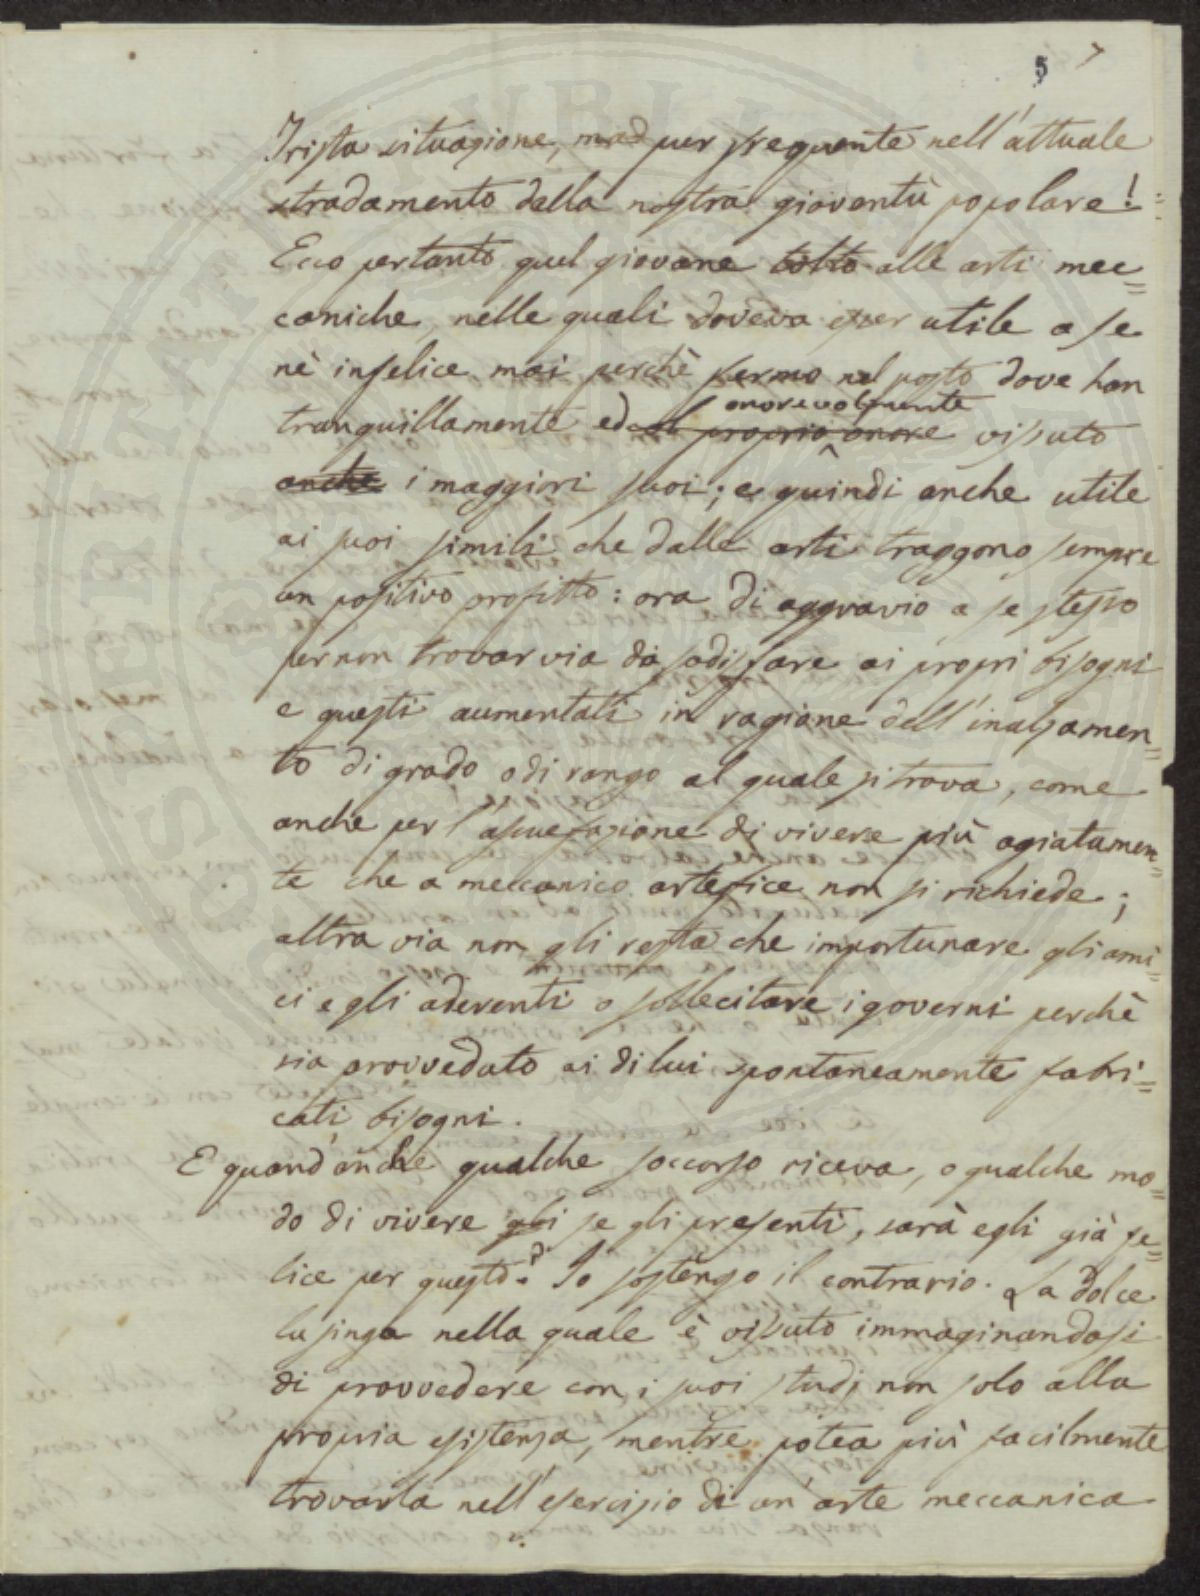 5 7
Trista situazione, mad pur frequente nell'attuale
stradamento della nostra gioventù popolare!
Ecco pertanto quel giovane tolto alle arti mec=
caniche, nelle quali doveva esser utile a se
nè infelice mai perchè fermo nel posto dove han
onorevolmente
tranquillamente ed col proprio onore vissuto
anche i maggiori suoi; e quindi anche utile
ai suoi simili che dalle arti traggono sempre
un positivo profitto: ora di aggravio a se stesso
per non trovar via da sodisfare ai propri bisogni
e questi aumentati in ragione dell'inalzamen=
to di grado o di rango al quale si trova, come
anche per l'assuefazione di vivere più agiatamen=
te che a meccanico artefice non si richiede;
altra via non gli resta che importunare gli ami=
ci e gli aderenti o sollecitare i governi perchè
sia provvedato ai di lui spontaneamente fabri=
cati bisogni.
E quand'anche qualche soccorso riceva, o qualche mo=
do di vivere gli se gli presenti, sarà egli già fe=
lice per questo? Io sostengo il contrario. La dolce
lusinga nella quale è vissuto immaginandosi
di provvedere con i suoi studj non solo alla
propria esistenza, mentre potea più facilmente
trovarla nell'esercizio di un'arte meccanica